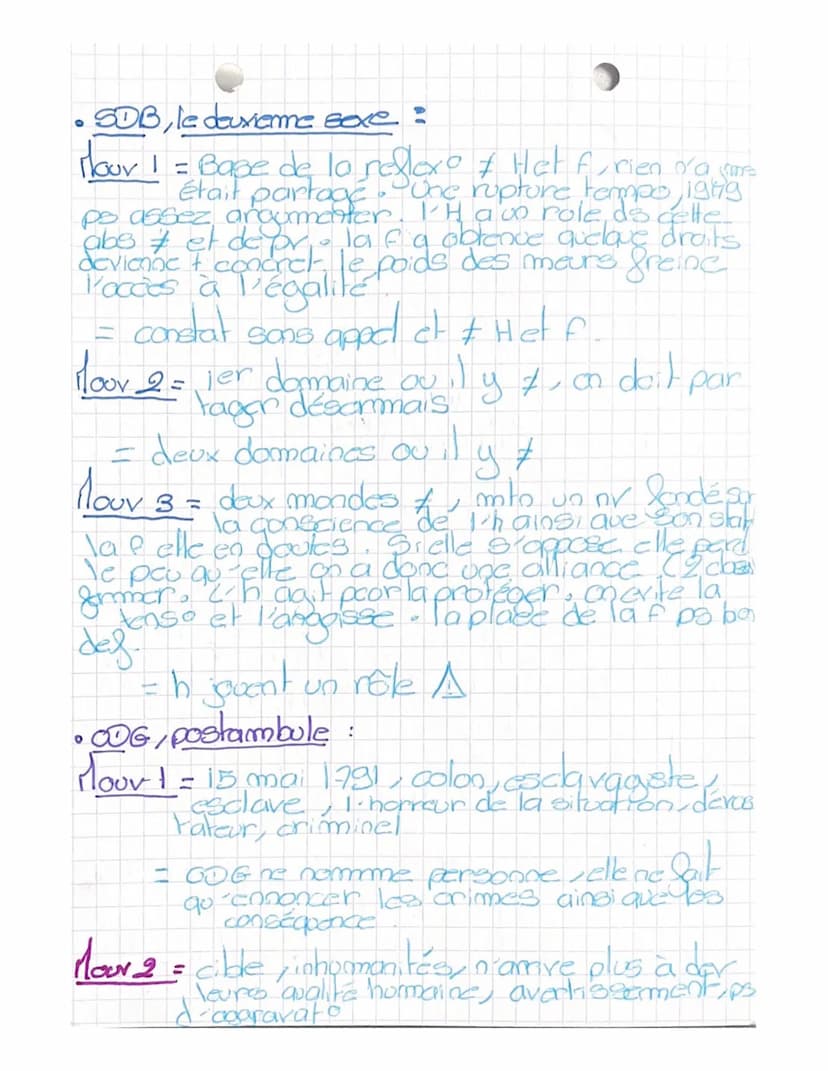 • SDB, le deuxieme sexe :
Mouv 1 = Base de la reflex° ≠ H et f, rien n'a
était partagé. Une rupture tempo, 1949
ps assez argumenter. l'H a un role ds cette
abs ≠ et de pv. la f a obtence quelque droits
devienne + concret, le poids des mœurs freine
l'accès à l'égalité
= constat sans appel et ≠ H et f.
Mouv 2 = 1er domaine ou il y ≠, on doit par
tager désormais
= deux domaines ou il y ≠
Mouv 3 = deux mondes ≠, mtn un nv fondé sur
la conscience de l'h ainsi que son stat
la f elle en doutes. Si elle s'oppose elle perd
le peu qu'elle en a donc une alliance (2
former. L'h agit pour la protéger, on evite la
tens° et l'angoisse. la place de la f ps bn
def.
= h jouent un rôle ⚠
• ODG, postambule :
Mouv 1 = 15 mai 1791, colon, esclavagste,
esclave, l'horreur de la situation, dévas
tateur, criminel
= ODG ne nommme personne, elle ne fait
qu'ennoncer les crimes ainsi que les
conséquence
Mouv 2 = cible, inhumanités, n'arrive plus à
leurs qualité humaine, avertissement, ps
d'aggravat°